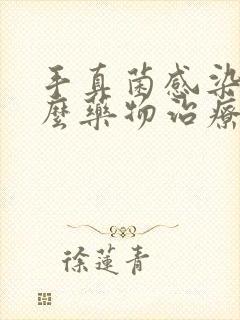 手真菌感染
麼藥物治療
徐蓮青